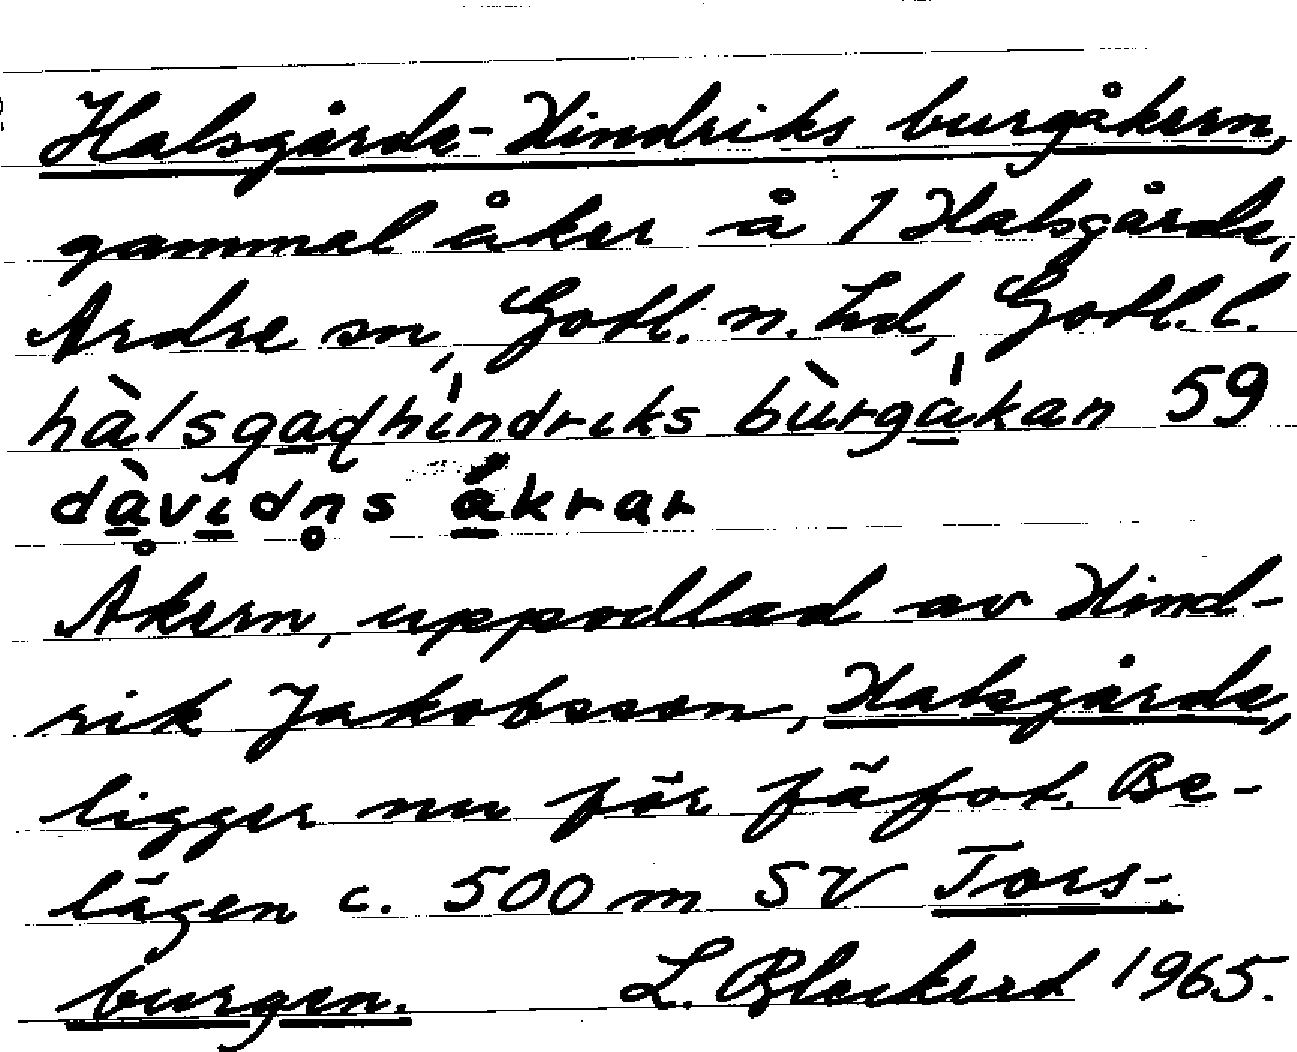 Halsgårde-Hindriks burgåkern,
gammal åker å 1 Halsgårde,
Ardre sn, Gotl. n. hd, Gotl. l.
hàlsgadhíndriks bùrgákan 59
dàvídns ákrar
Åkern, uppodlad av Hind-
rik Jakobsson, Halsgårde,
ligger nu för fäfot. Be-
lägen c. 500 m SV Tors-
burgen. L. Bleckerd 1965.